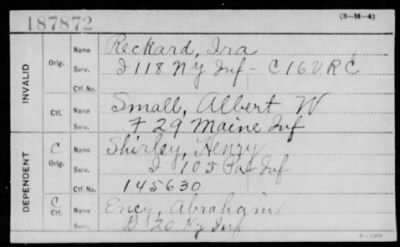 187872
(3—H—4)
INVALID
Orig.
Name Reckard, Ira
Serv. I 118 NY Inf - C 16 V R C
Ctf. No.
Ctf.
Name Small, Albert W
Serv. F 29 Maine Inf
DEPENDENT
C Orig.
Name Shirley, Henry
Serv. I 105 Pa Inf
Ctf. No. 145630
C Ctf.
Name Ency, Abraham
Serv. D 20 Ky Inf